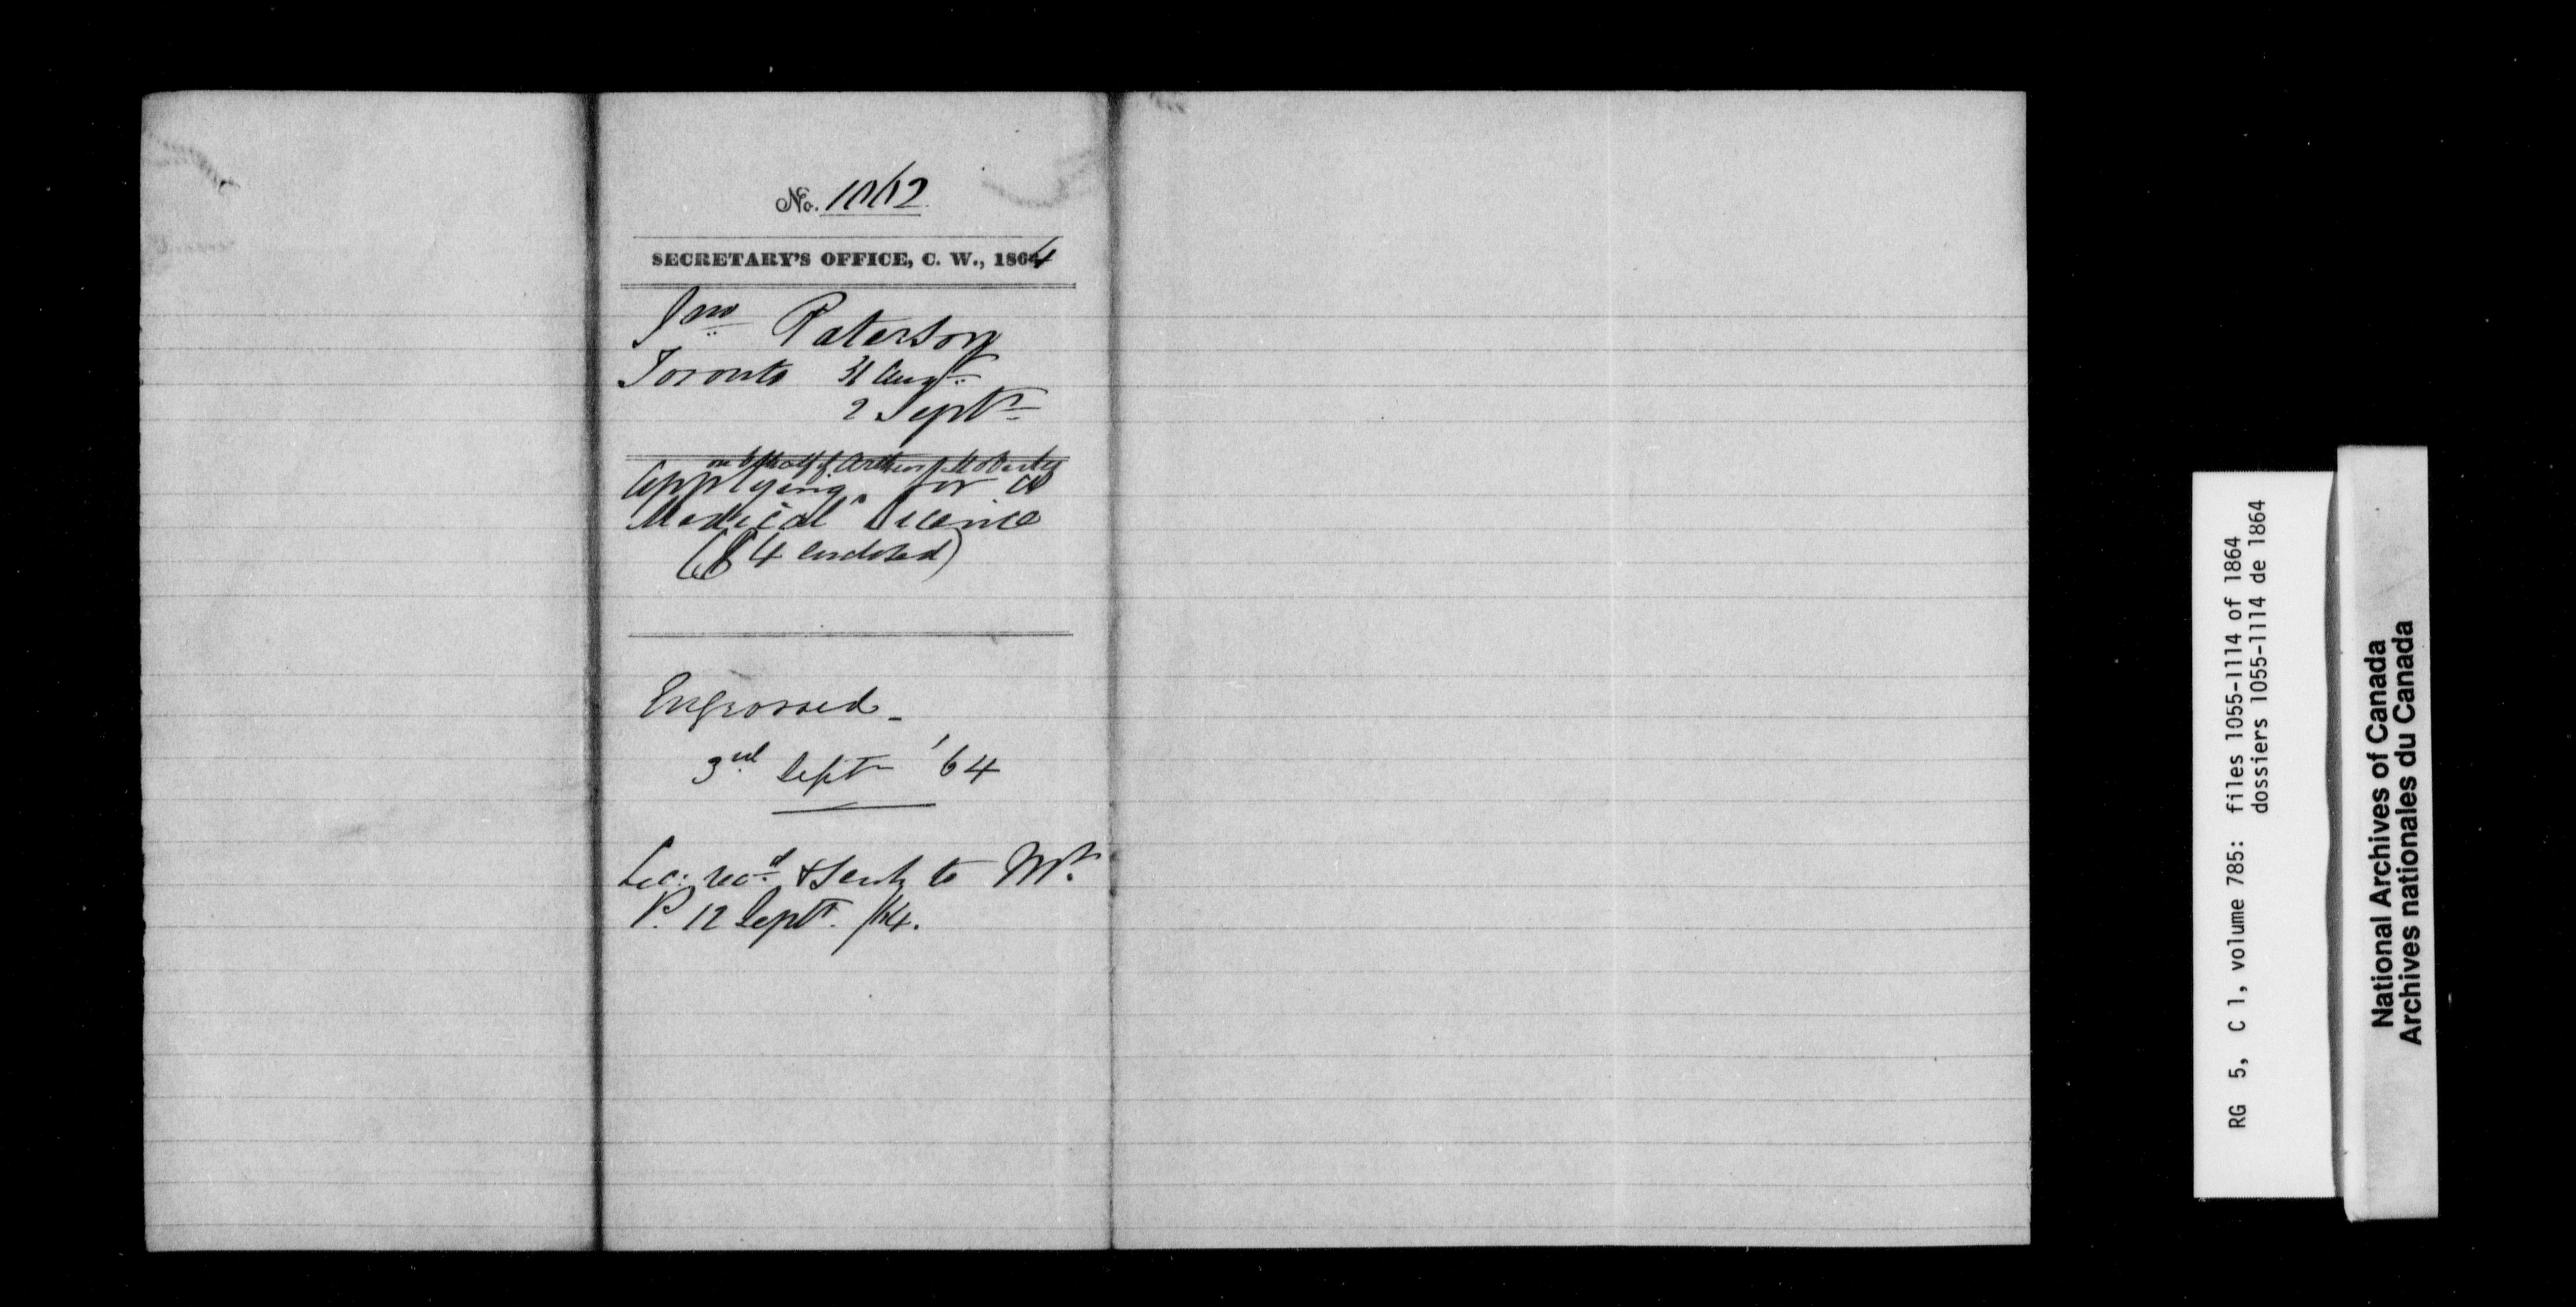 No. 1062
SECRETARY'S OFFICE, C. W., 1864
Jno Paterson
Toronto 31 Augt
2 Septr
on behalf of Arthur
Applying for a
Medical Licence
($4 enclosed)
Engrossed
3rd Sept '64
Lic: recd & sent to Mr.
P. 12 Septr. /64.
RG 5, C 1, volume 785: files 1055-1114 of 1864
dossiers 1055-1114 de 1864
National Archives of Canada
Archives nationales du Canada